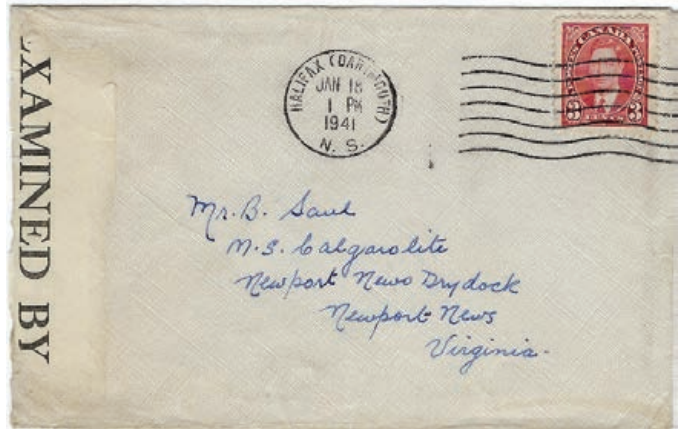 EXAMINED BY
HALIFAX (DARTMOUTH)
JAN 18
1 PM
1941
N. S.
CANADA
3 CENTS 3
Mr. B. Saul
M.S. Calgarolite
Newport News Drydock
Newport News
Virginia.